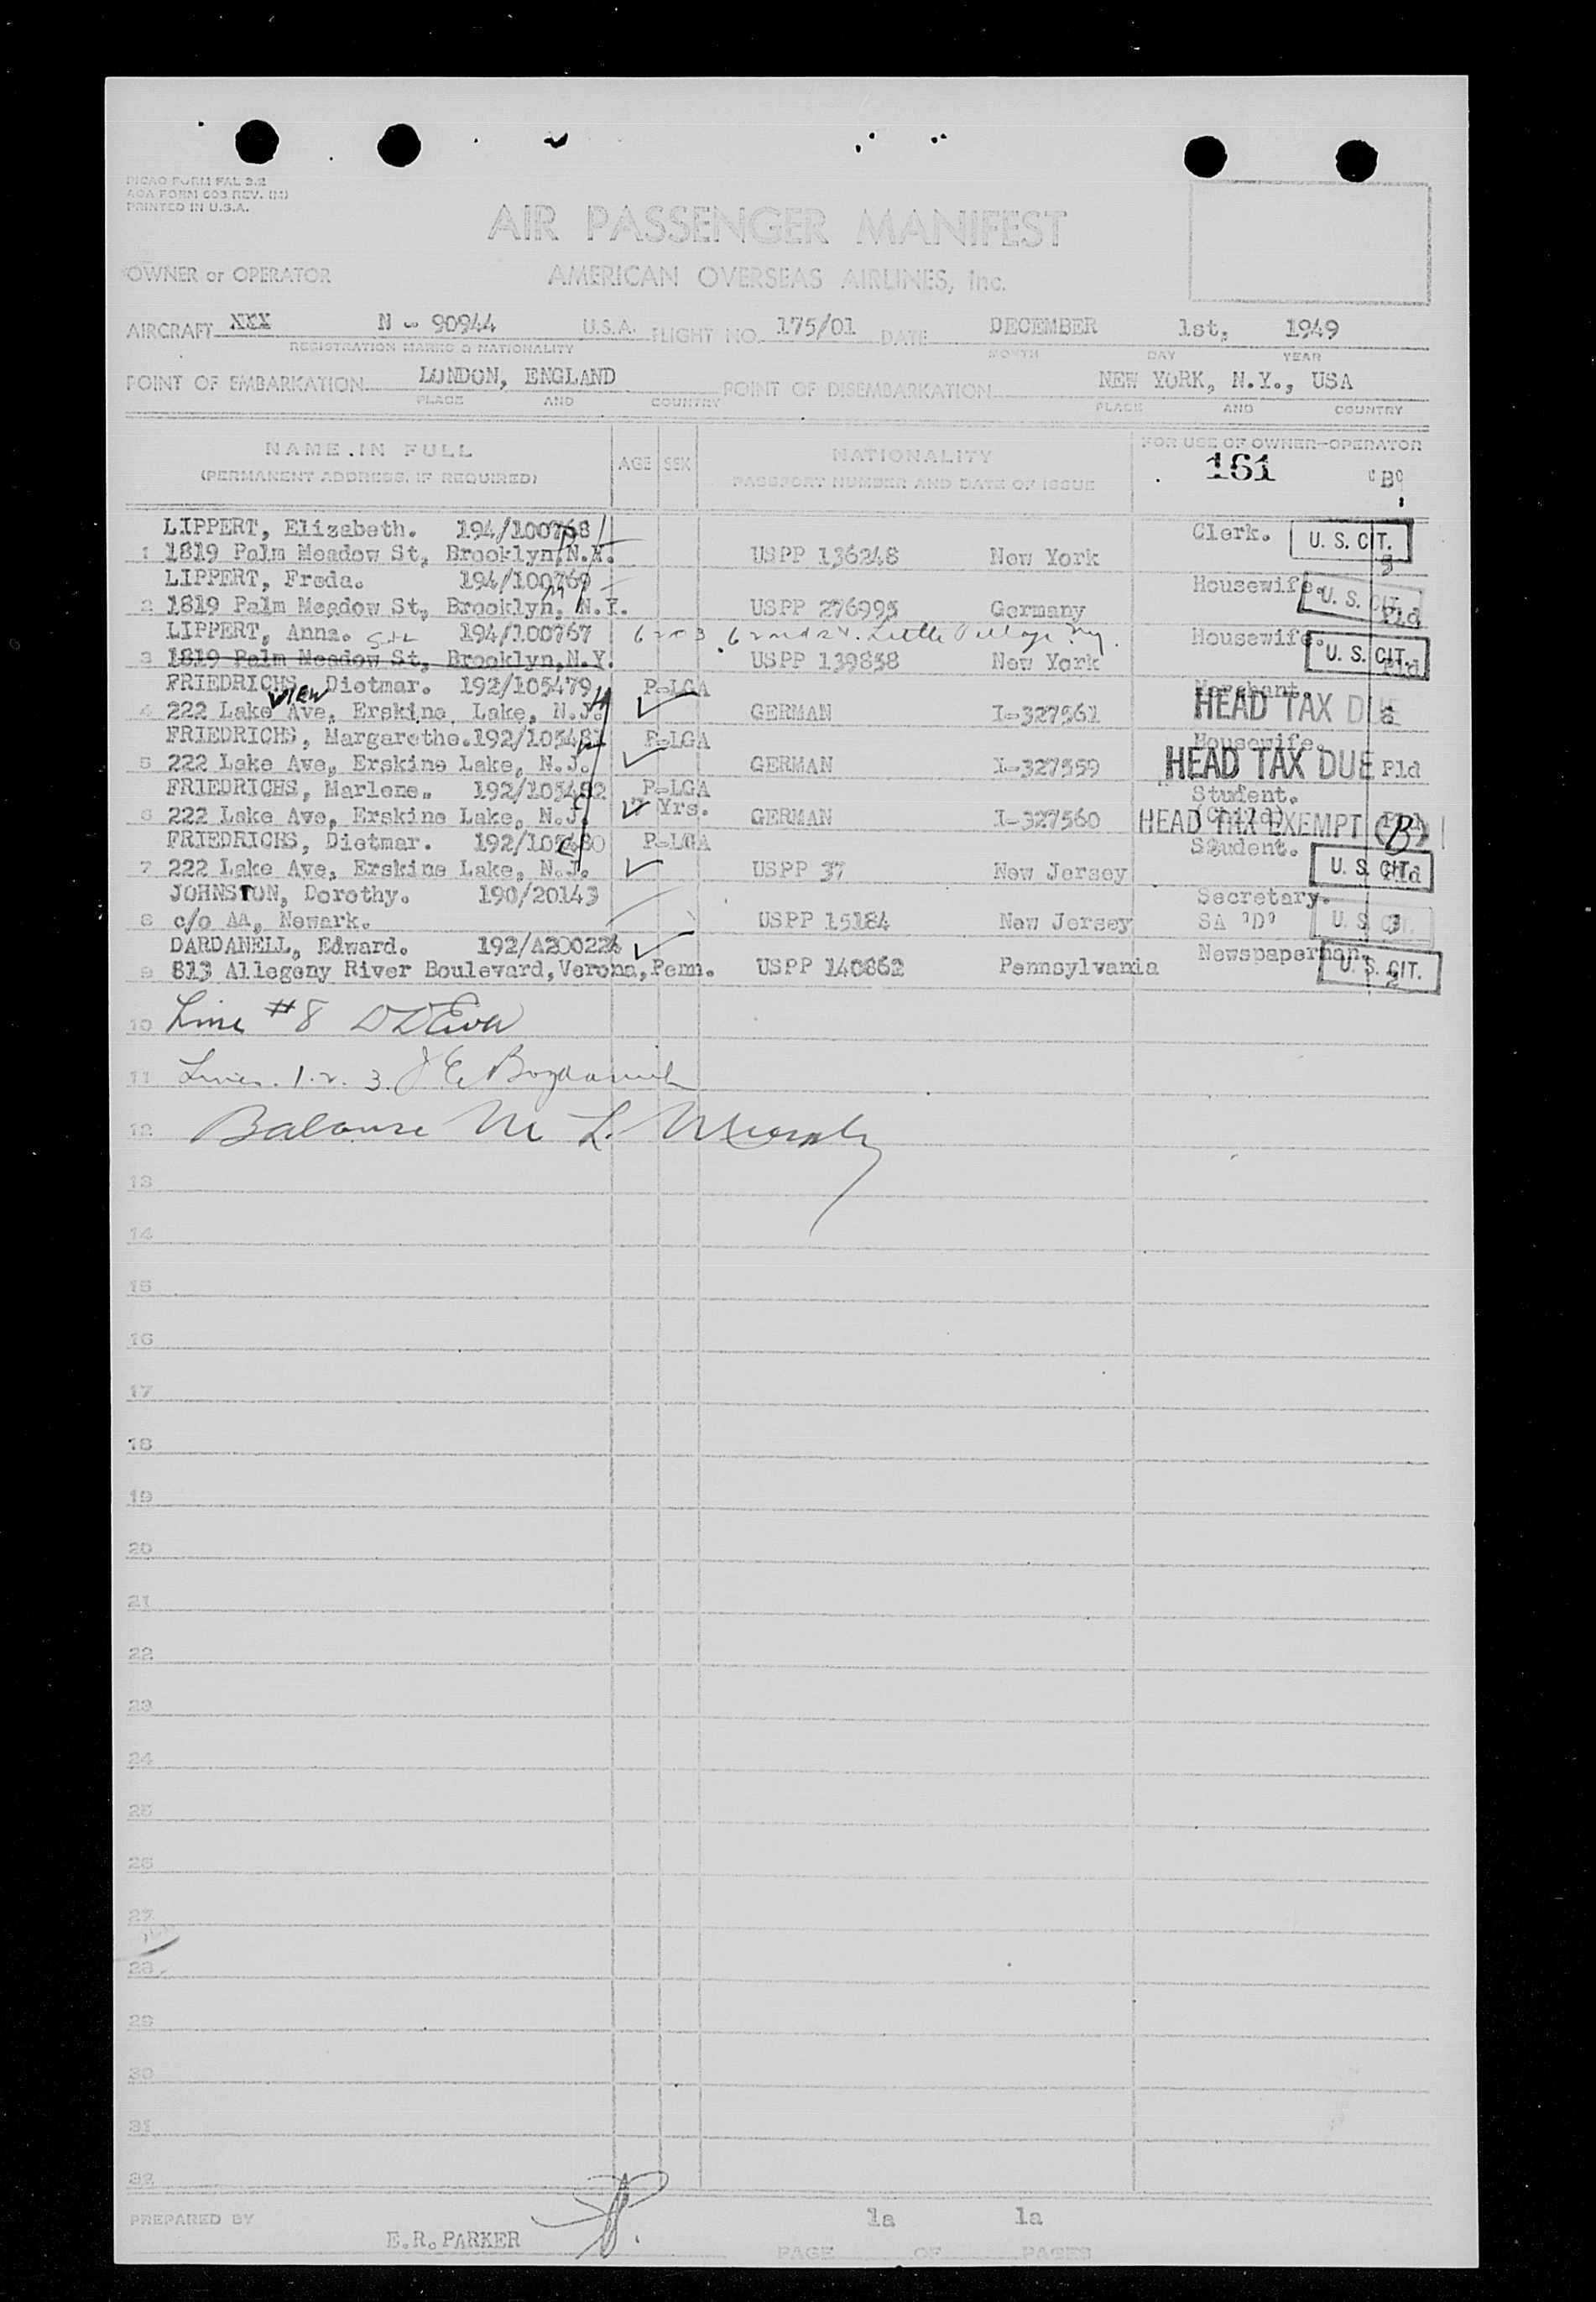 ICAO FORM FAL 3.2
AOA FORM 603 REV. (M)
PRINTED IN U.S.A.
AIR PASSENGER MANIFEST
OWNER or OPERATOR AMERICAN OVERSEAS AIRLINES, Inc.
AIRCRAFT XXX N - 90944 U.S.A. FLIGHT NO. 175/01 DATE DECEMBER 1st, 1949
REGISTRATION MARKS & NATIONALITY MONTH DAY YEAR
POINT OF EMBARKATION LONDON, ENGLAND POINT OF DISEMBARKATION NEW YORK, N.Y., USA
PLACE AND COUNTRY PLACE AND COUNTRY
NAME IN FULL AGE SEX NATIONALITY FOR USE OF OWNER-OPERATOR
(PERMANENT ADDRESS, IF REQUIRED) PASSPORT NUMBER AND DATE OF ISSUE 161 'B'
LIPPERT, Elizabeth. 194/100768 Clerk. U. S. CIT.
1 1819 Palm Meadow St, Brooklyn, N.Y. USPP 136248 New York
LIPPERT, Freda. 194/100769 Housewife. U. S. CIT.
2 1819 Palm Meadow St, Brooklyn, N.Y. USPP 276995 Germany Fld
LIPPERT, Anna. 194/100767 Housewife. U. S. CIT.
3 1819 Palm Meadow St, Brooklyn, N.Y. USPP 139838 New York Fld
FRIEDRICHS, Dietmar. 192/105479 P-LGA Merchant.
VIEW
4 222 Lake Ave, Erskine Lake, N.J. GERMAN I-327561 HEAD TAX DUE
FRIEDRICHS, Margarethe. 192/105481 P-LGA Housewife.
5 222 Lake Ave, Erskine Lake, N.J. GERMAN I-327559 HEAD TAX DUE Fld
FRIEDRICHS, Marlene. 192/105482 P-LGA Student.
6 222 Lake Ave, Erskine Lake, N.J. Yrs. GERMAN I-327560 (Child) HEAD TAX EXEMPT (B)
FRIEDRICHS, Dietmar. 192/105480 P-LGA Student.
7 222 Lake Ave, Erskine Lake, N.J. USPP 37 New Jersey U. S. CIT.
JOHNSTON, Dorothy. 190/20143 Secretary.
8 c/o AA, Newark. USPP 15184 New Jersey SA 'D' U. S. CIT.
DARDANELL, Edward. 192/A200224 Newspaperman.
9 813 Allegeny River Boulevard, Verona, Penn. USPP 140862 Pennsylvania U. S. CIT.
10 Line #8
11 Lines. 1. 2. 3.
12 Balance M L.
13
14
15
16
17
18
19
20
21
22
23
24
25
26
27
28
29
30
31
32
PREPARED BY E.R. PARKER 1a 1a
PAGE OF PAGES